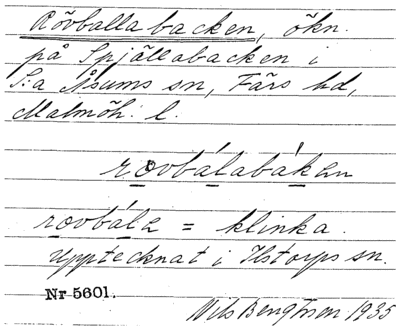 Rövballabacken, ökn.
på Spjällabacken i
S:a Åsums sn, Färs hd,
Malmöh. l.
rovbálabákan
rovbála = klinka.
Upptecknat i Ilstorps sn.
Nr 5601.
Nils Bengtsson 1935